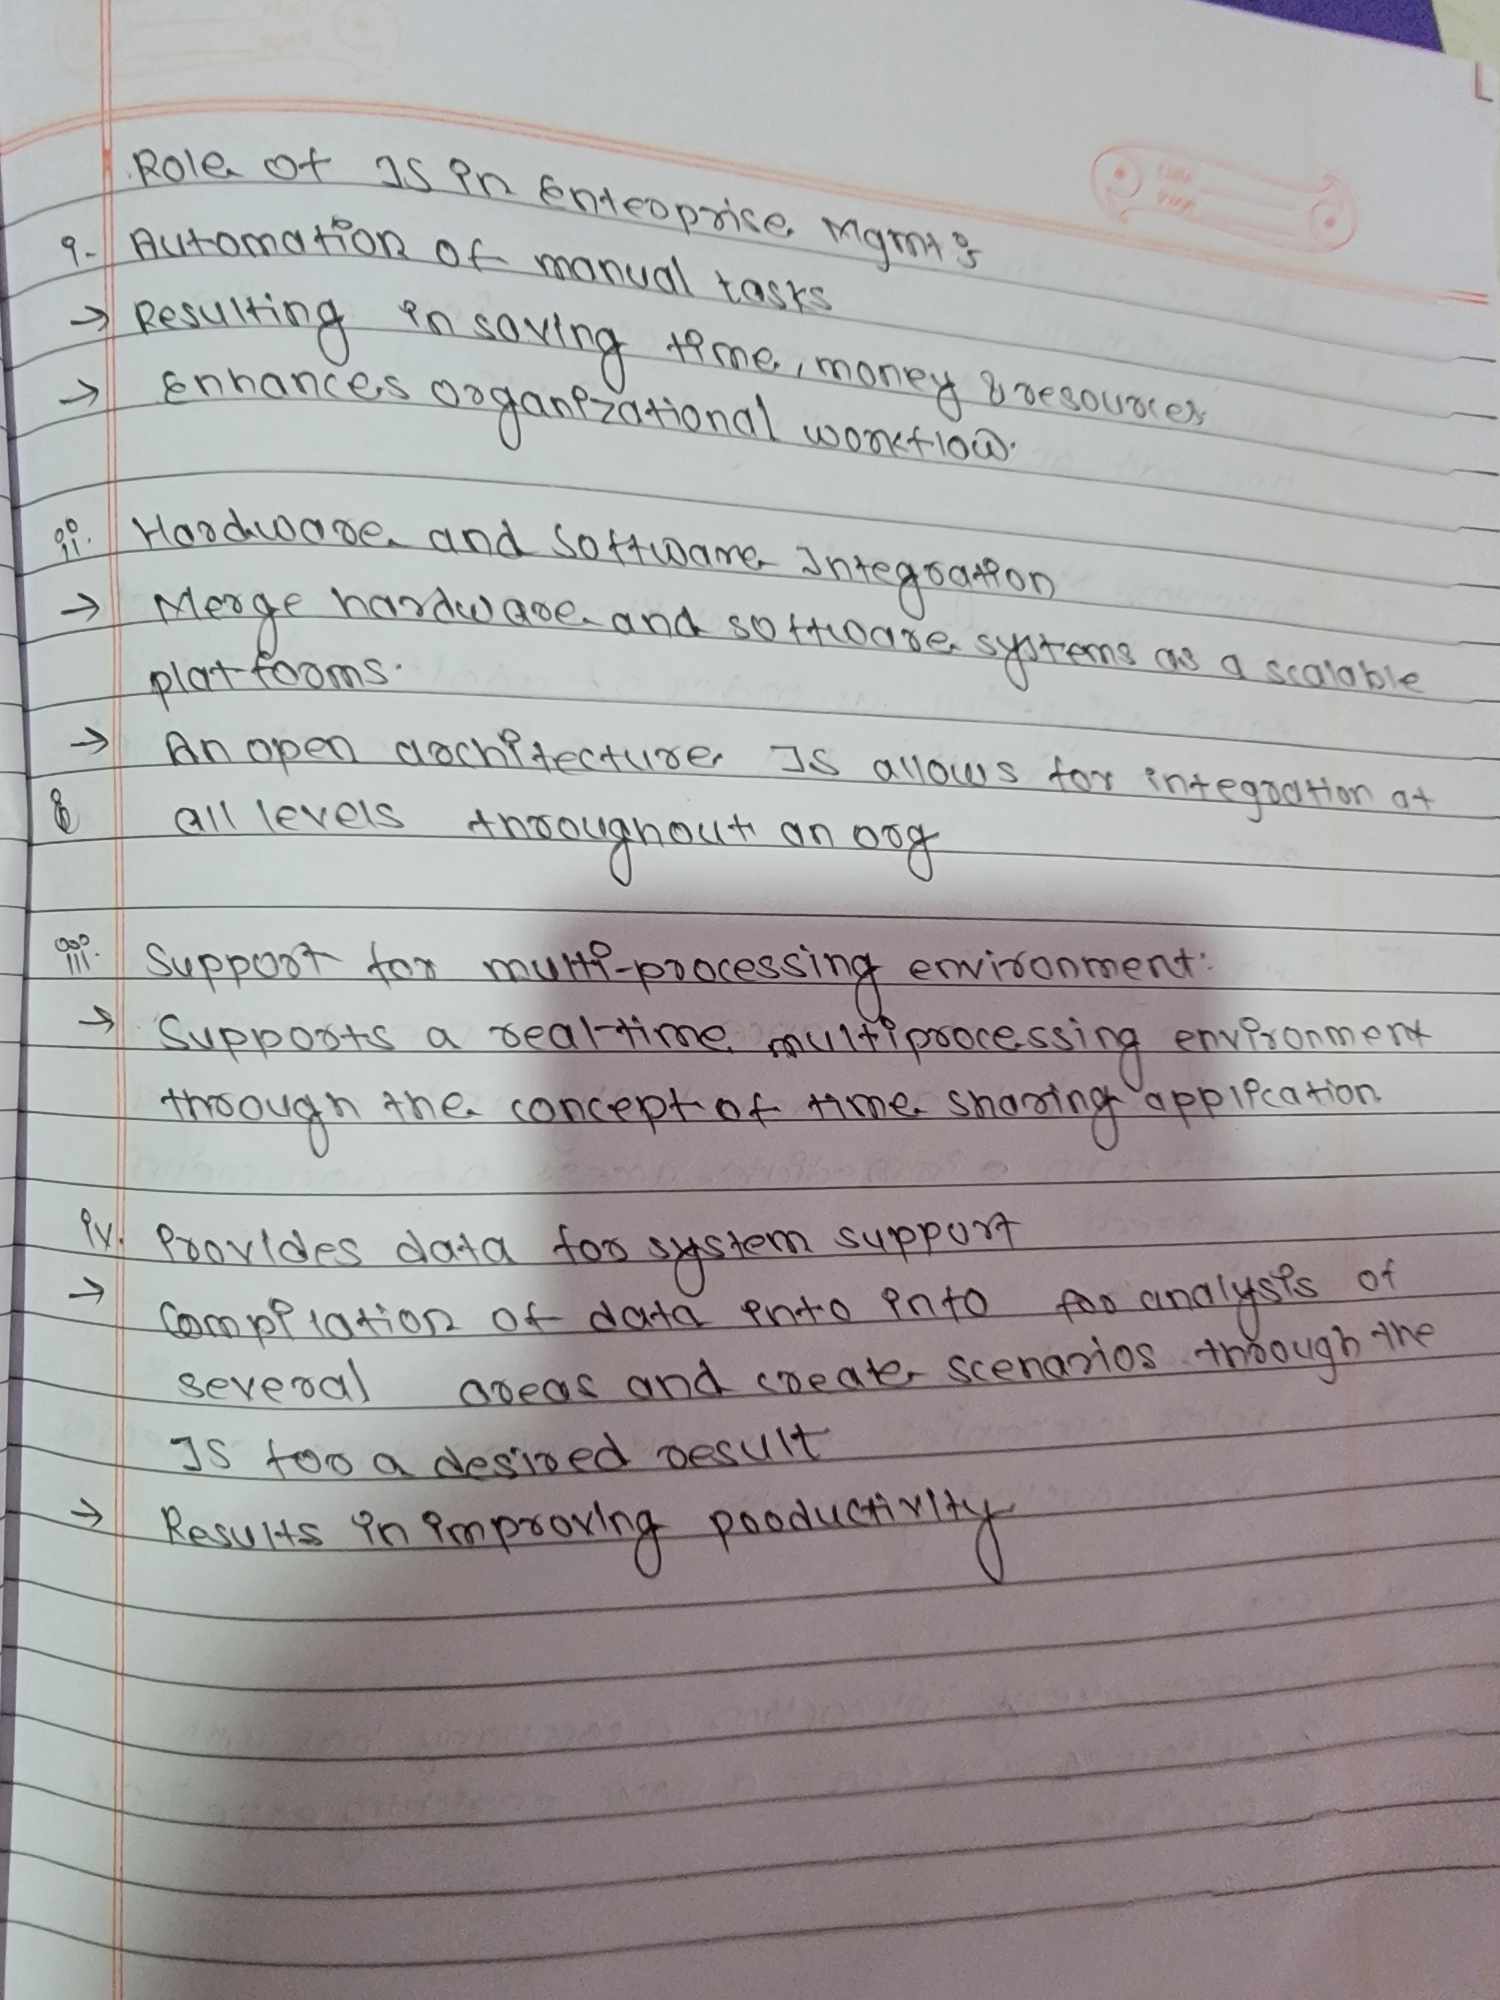 Role of IS in Enterprise Mgmt :
i. Automation of manual tasks
→ Resulting in saving time, money & resources
→ Enhances organizational workflow.
ii. Hardware and Software Integration
→ Merge hardware and software systems as a scalable
platforms.
→ An open architecture IS allows for integration at
all levels throughout an org
iii. Support for multi-processing environment:
→ Supports a real-time multiprocessing environment
through the concept of time sharing application
iv. Provides data for system support
→ Compilation of data into info for analysis of
several areas and create scenarios through the
IS for a desired result
→ Results in improving productivity